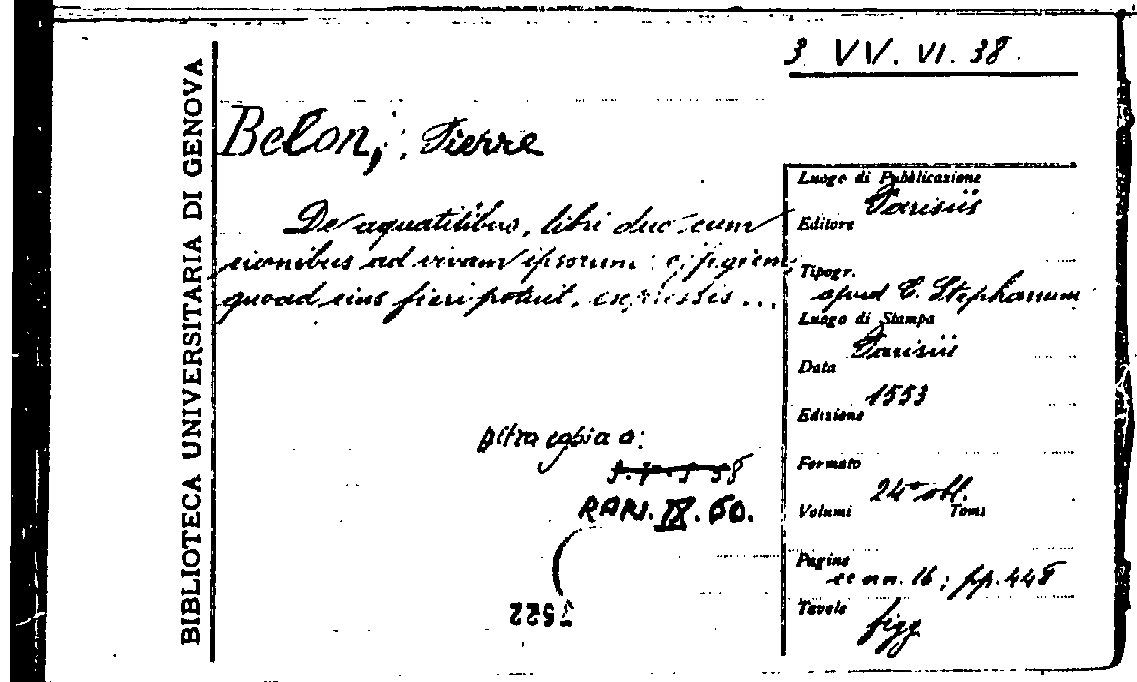 BIBLIOTECA UNIVERSITARIA DI GENOVA
3 VV. VI. 38
Belon, Pierre
De aquatilibus, libri duo cum
iconibus ad vivam ipsorum effigiem,
quoad eius fieri potuit, expressis...
Luogo di Pubblicazione
Parisiis
Editore
Tipogr.
apud C. Stephanum
Luogo di Stampa
Parisiis
Data
1553
Edizione
Formato
24° obl.
Volumi Tomi
Pagine
cc nn. 16; pp. 448
Tavole
figg
Altra copia a:
RARI. IX. 60.
7522